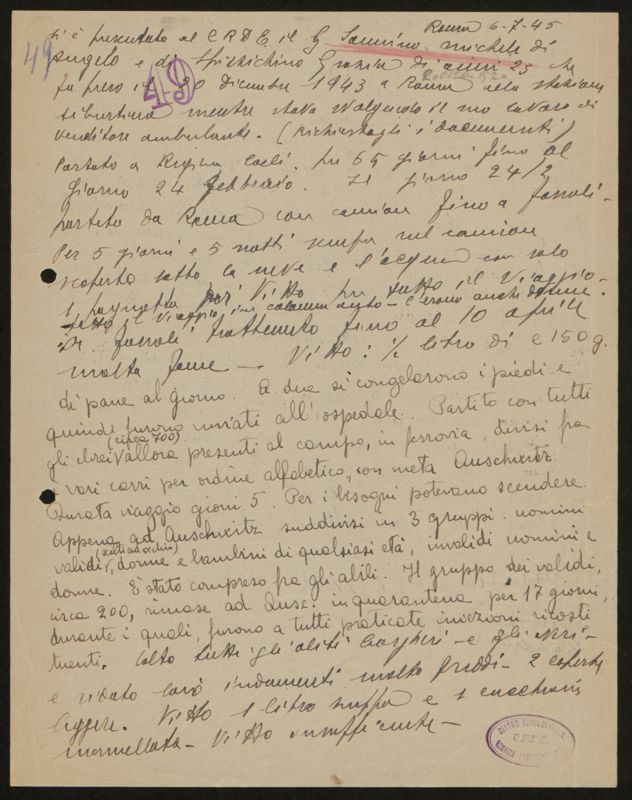 Roma 6-7-45
49
Si è presentato al C R D E il Sig Sonnino Michele di
Angelo e di Spizzichino Grazia di anni 25 che
49
fu preso il 20 Dicembre 1943 a Roma alla stazione
tiburtina mentre stava svolgendo il suo lavoro di
venditore ambulante. (Richiestogli i documenti)
Portato a Regina Coeli. per 65 giorni fino al
giorno 24 febbraio. Il giorno 24/2
partito da Roma con camion fino a Fossoli -
Per 5 giorni e 5 notti sempre nel camion
scoperto sotto la neve e l'acqua con solo
1 pagnotta per vitto per tutto il viaggio -
tutto il viaggio in - c'erano anche donne.
A Fossoli trattenuto fino al 10 aprile
molta fame - Vitto: ½ litro di e 150 g.
di pane al giorno. A due si congelarono i piedi e
quindi furono inviati all'ospedale. Partito con tutti
(circa 700)
gli ebrei allora presenti al campo, in ferrovia, divisi fra
i vari carri per ordine alfabetico, con meta Auschwitz.
Durata viaggio giorni 5. Per i bisogni potevano scendere.
Appena ad Auschwitz suddivisi in 3 gruppi: uomini
validi, donne e bambini di qualsiasi età, invalidi uomini e
donne. È stato compreso fra gli abili. Il gruppo dei validi,
circa 200, rimase ad in quarantena per 17 giorni,
durante i quali, furono a tutti praticate iniezioni ricosti-
tuenti. Tolto tutti gli abiti borghesi - e gli
e ridato loro indumenti molto freddi - 2 coperte
leggere. Vitto 1 litro zuppa e 1 cucchiaio
marmellata - Vitto insufficiente -
C.R.D.E.